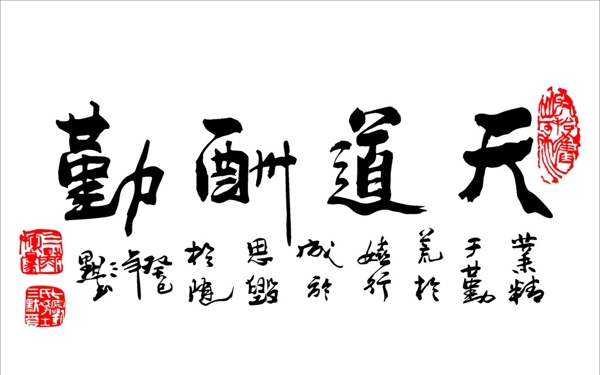 天道酬勤
業精
于勤
荒於
嬉行
成於
思毀
於随
癸巳年